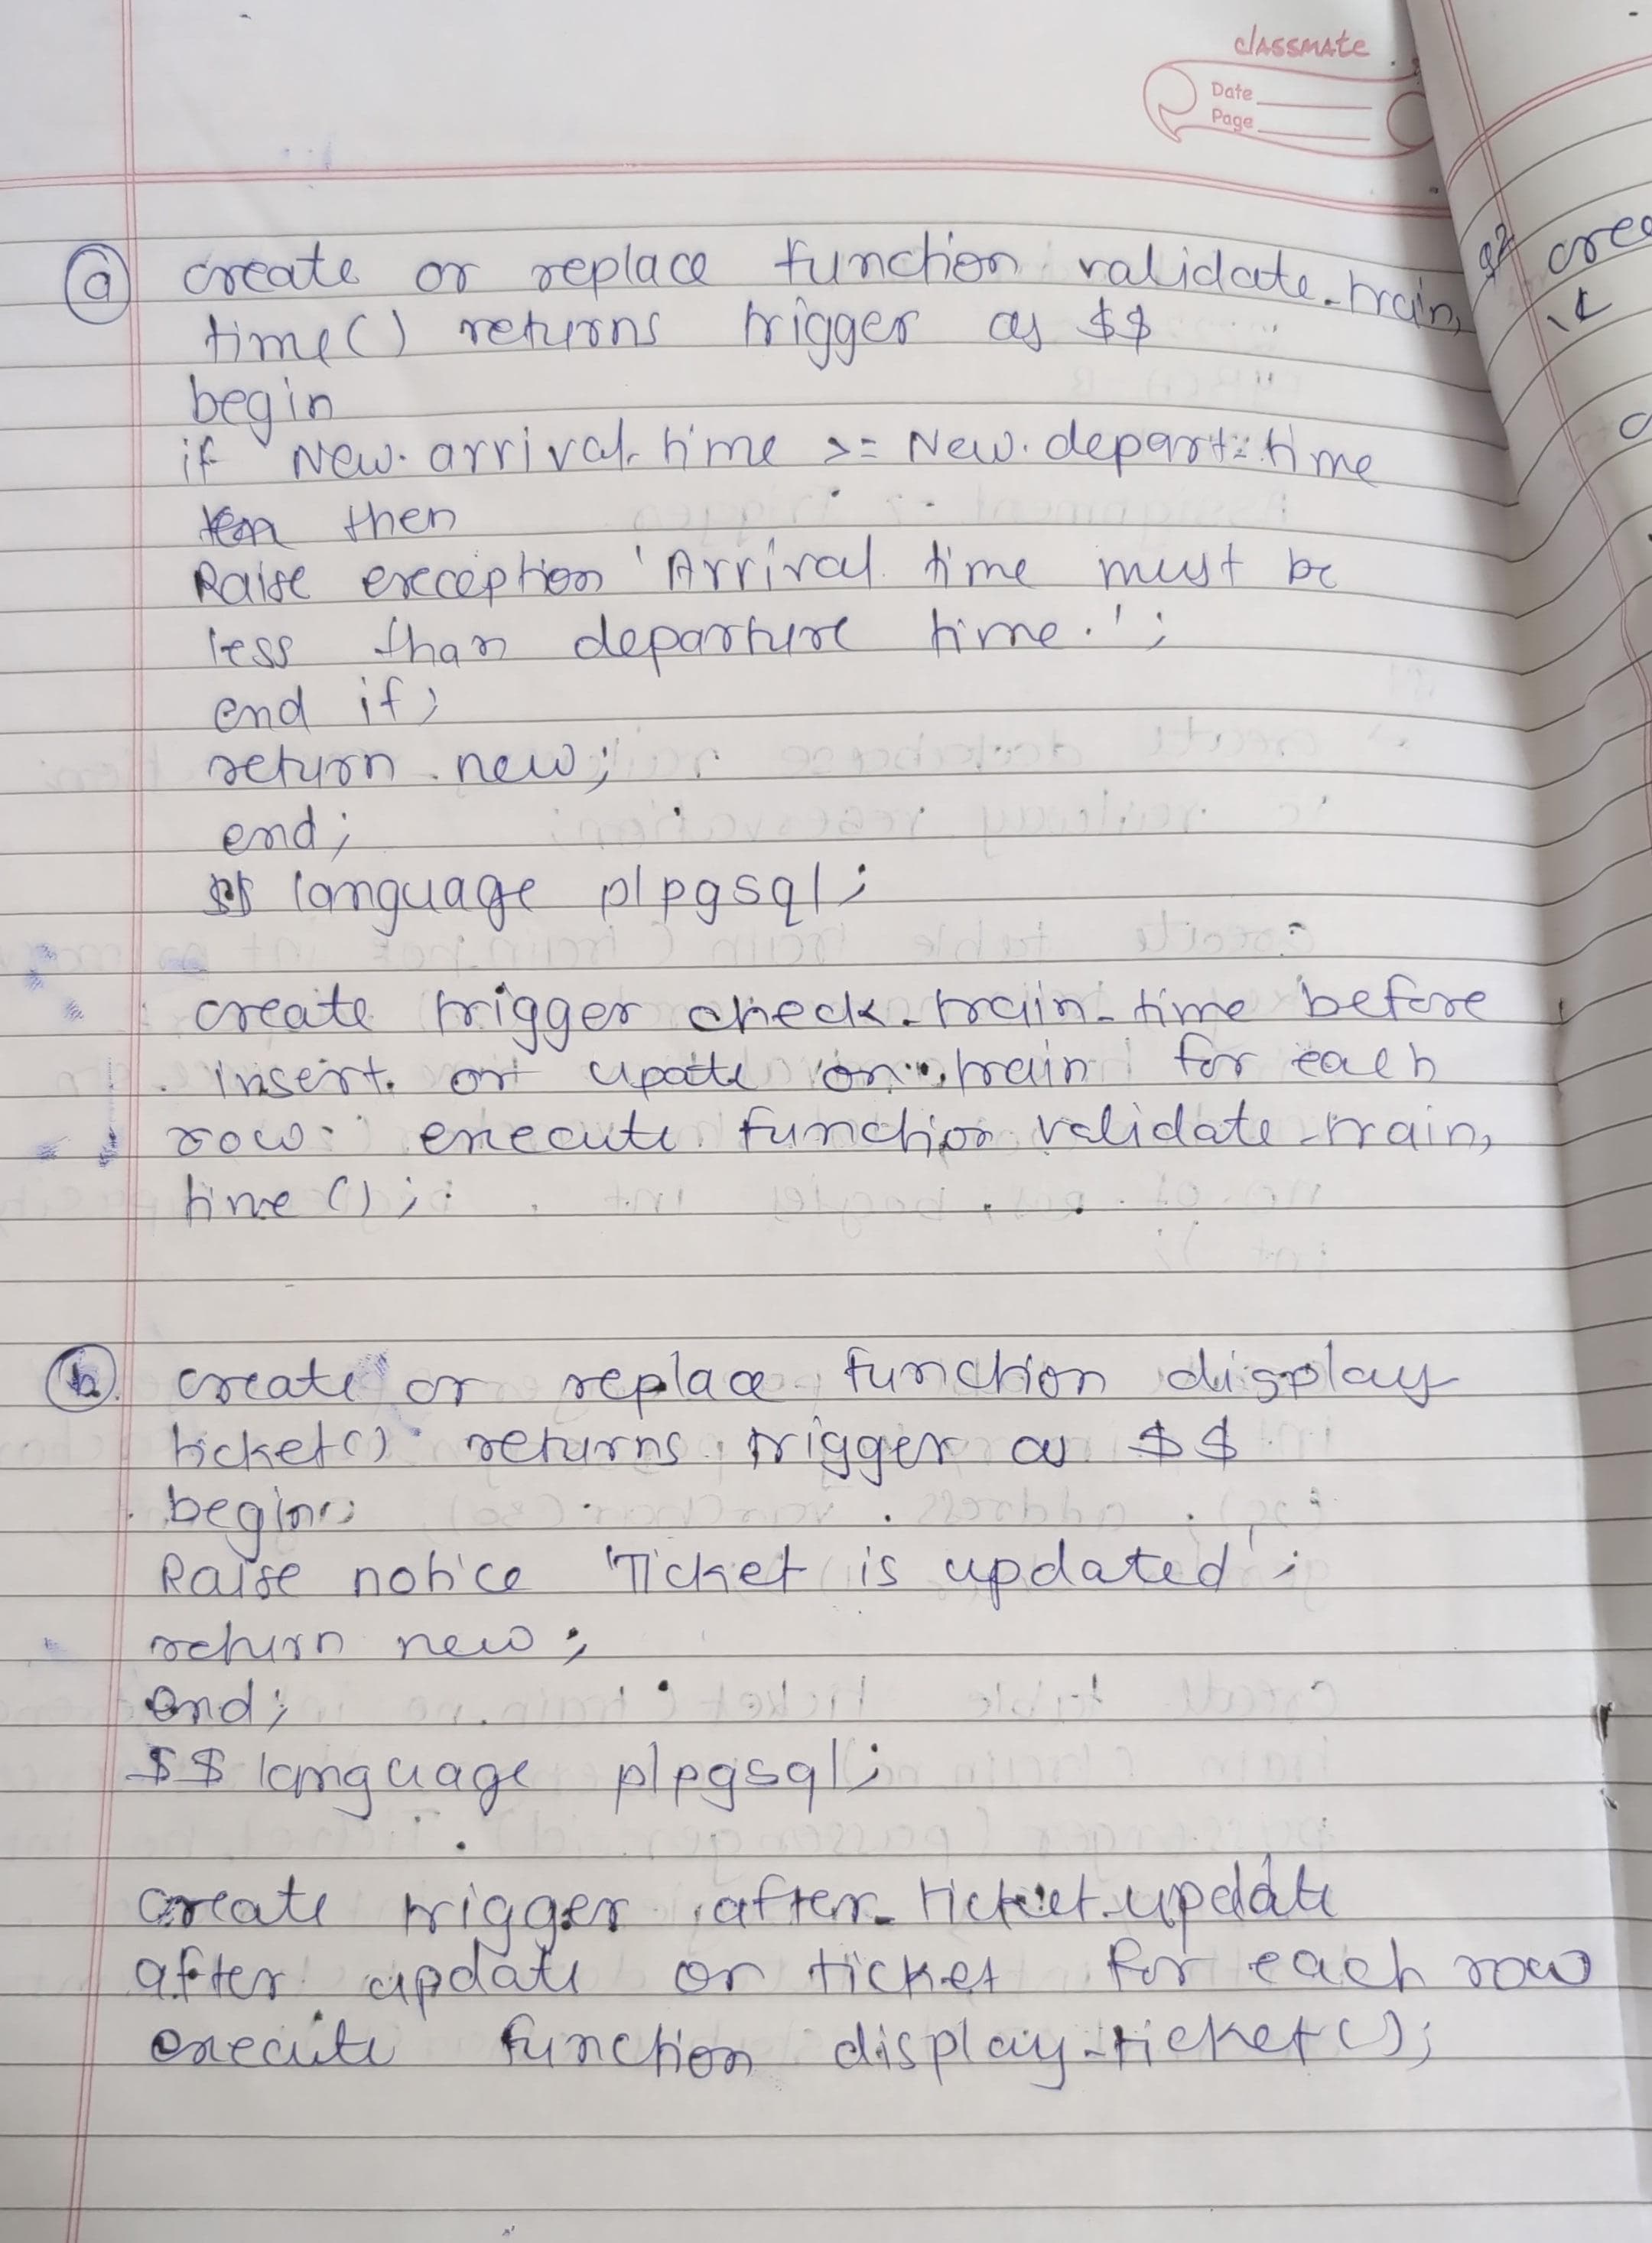 classmate
Date
Page
a create or replace function validate_train_
time() returns trigger as $$
begin
if New.arrival_time >= New.depart_time
then
Raise exception 'Arrival time must be
less than departure time.';
end if;
return new;
end;
$$ language plpgsql;
create trigger check_train_time before
insert or upate on train for each
row execute function validate_train_
time();
b. create or replace function display
ticket() returns trigger as $$
begin
Raise notice 'Ticket is updated';
return new;
end;
$$ language plpgsql;
create trigger after_ticket_update
after update on ticket for each row
execute function display_ticket();